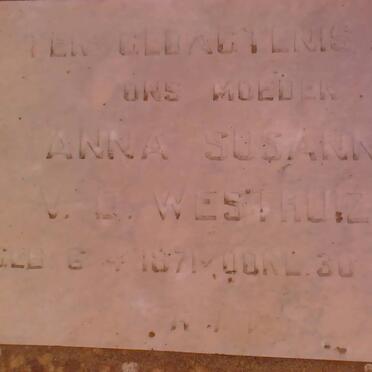 TER GEDAGTENIS
ONS MOEDER
ANNA SUSANN
V. D. WESTHUIZ
GEB 6 4 1871 OORL. 30